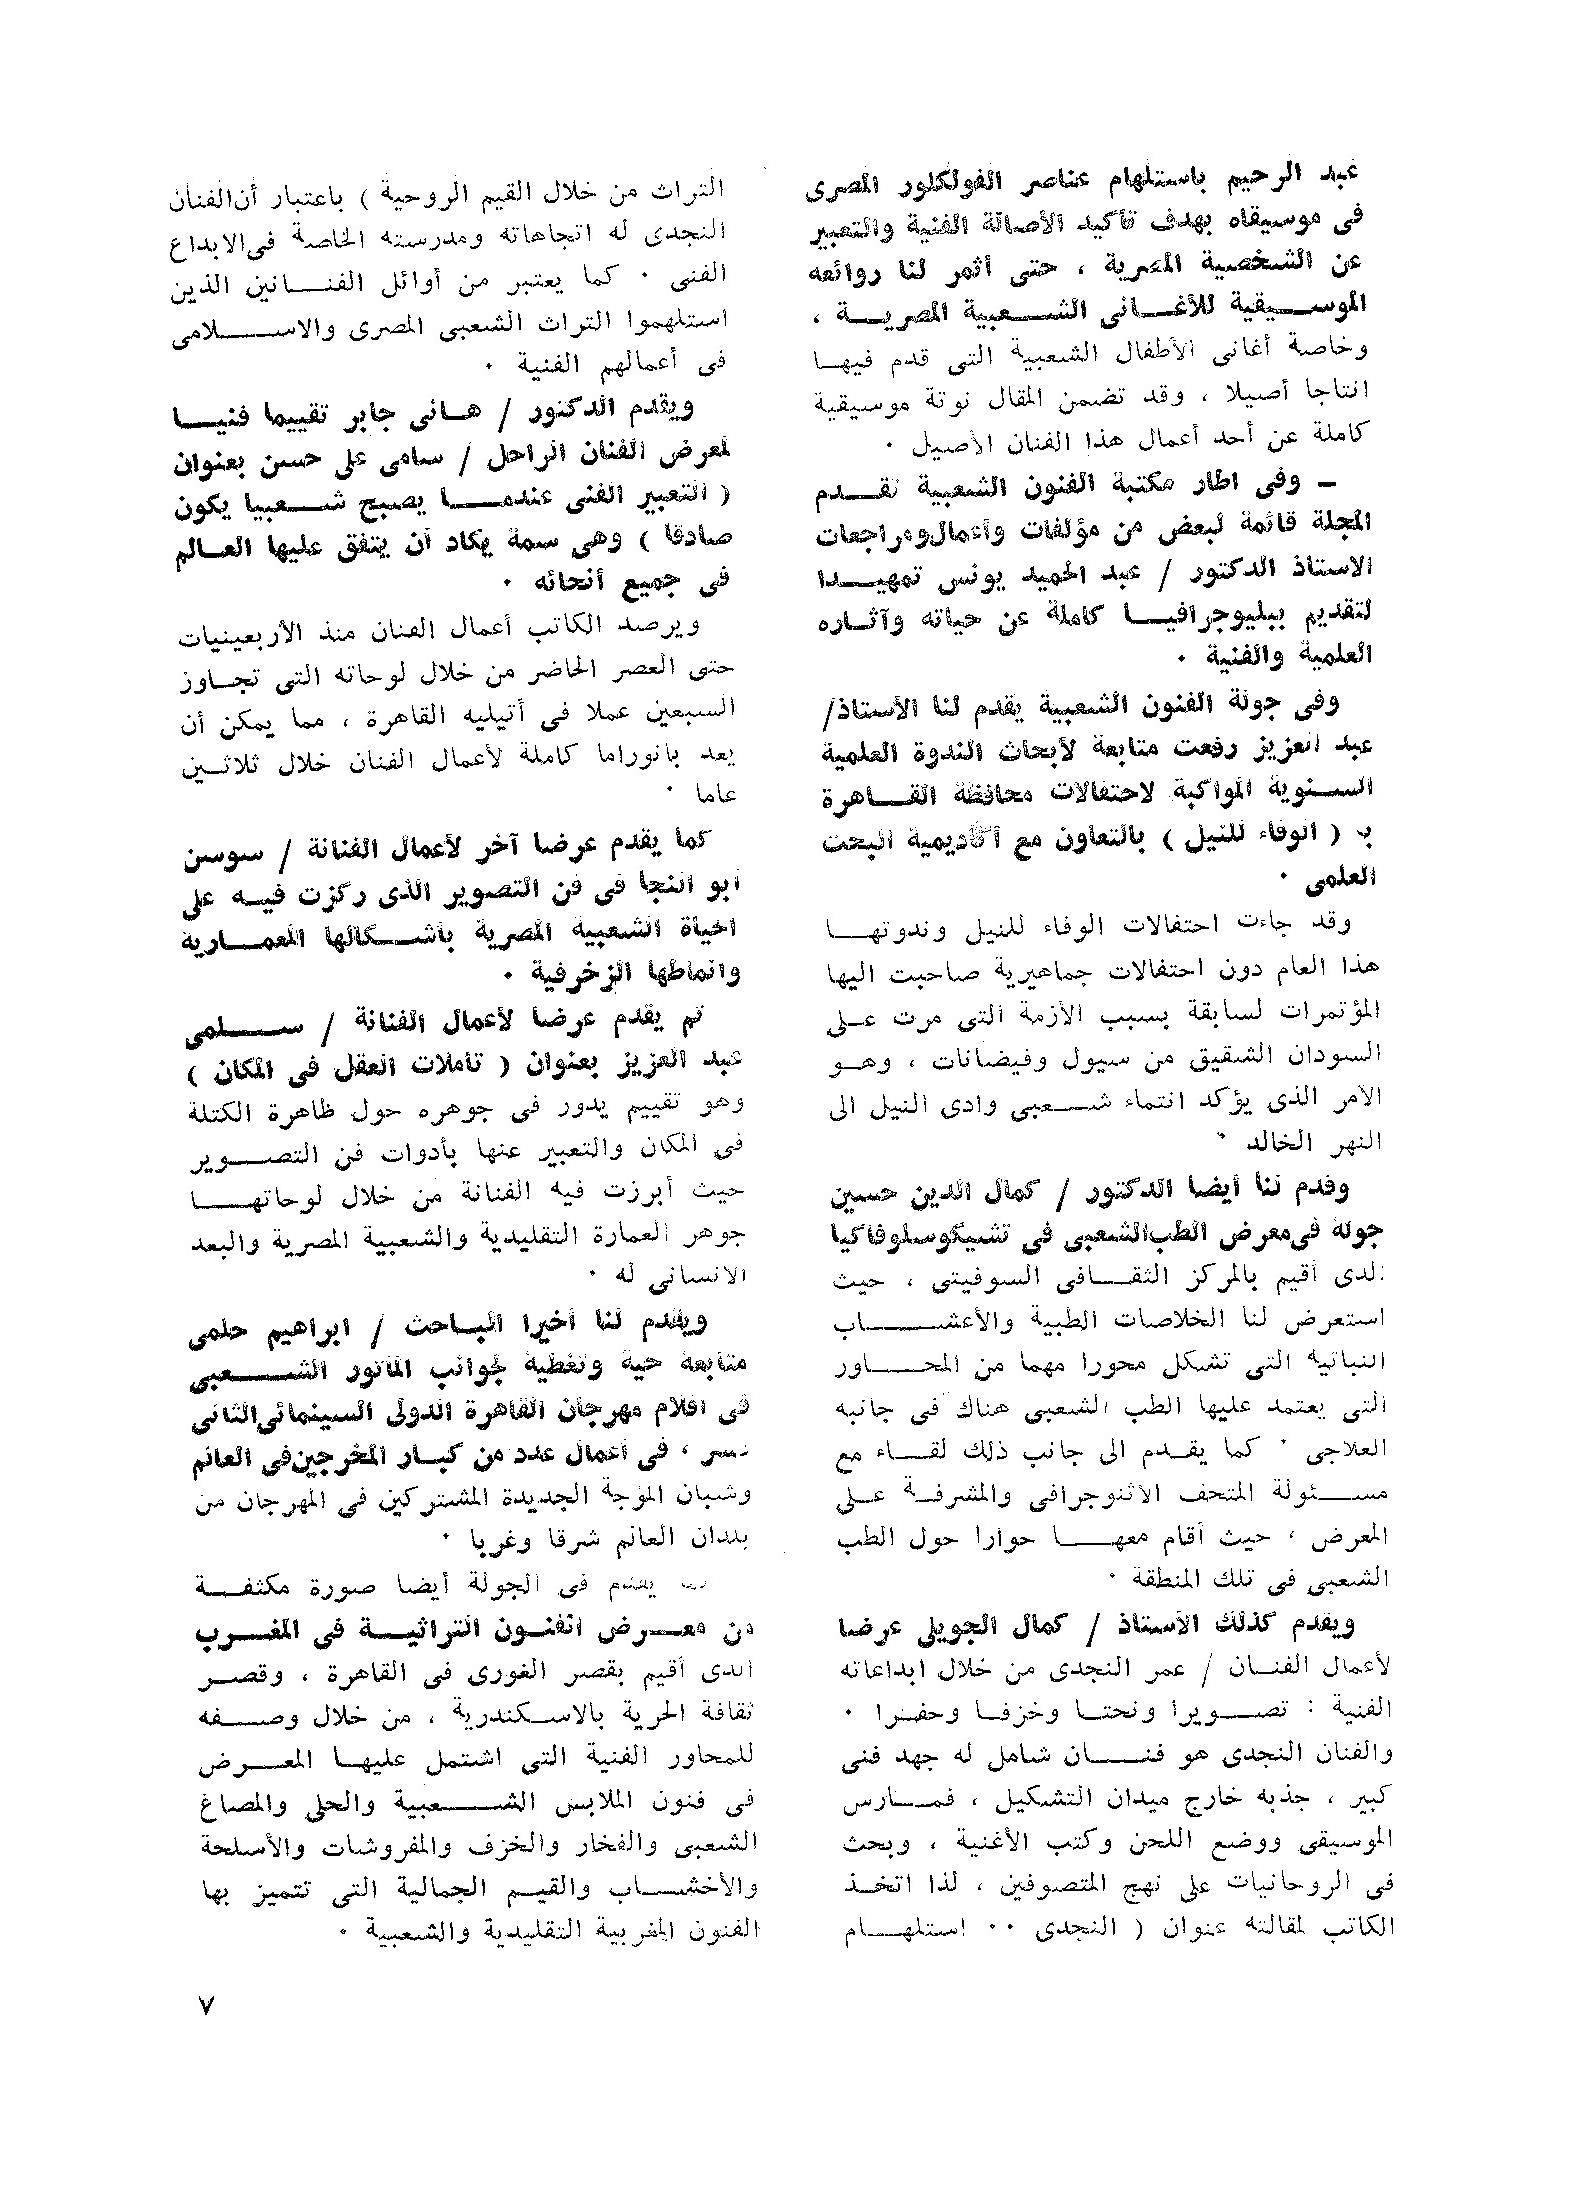 عبد الرحيم باستلهام عناصر الفولكلور المصرى
فى موسيقاه بهدف تأكيد الأصالة الفنية والتعبير
عن الشخصية المصرية ، حتى أثمر لنا روائعه
الموسيقية للأغانى الشعبية المصرية ،
وخاصة أغانى الأطفال الشعبية التى قدم فيها
انتاجا أصيلا ، وقد تضمن المقال نوتة موسيقية
كاملة عن أحد أعمال هذا الفنان الأصيل ٠
ــ وفى اطار مكتبة الفنون الشعبية تقدم
المجلة قائمة لبعض من مؤلفات وأعمال ومراجعات
الاستاذ الدكتور / عبد الحميد يونس تمهيدا
لتقديم ببليوجرافيا كاملة عن حياته وآثاره
العلمية والفنية ٠
وفى جولة الفنون الشعبية يقدم لنا الأستاذ/
عبد العزيز رفعت متابعة لأبحاث الندوة العلمية
السنوية المواكبة لاحتفالات محافظة القاهرة
ب ( الوفاء للنيل ) بالتعاون مع أكاديمية البحث
العلمى ٠
وقد جاءت احتفالات الوفاء للنيل وندوتها
هذا العام دون احتفالات جماهيرية صاحبت اليها
المؤتمرات لسابقة بسبب الأزمة التى مرت على
السودان الشقيق من سيول وفيضانات ، وهو
الامر الذى يؤكد انتماء شعبى وادى النيل الى
النهر الخالد ٠
وقدم لنا أيضا الدكتور / كمال الدين حسين
جوله فى معرض الطب الشعبى فى تشيكوسلوفاكيا
الذى أقيم بالمركز الثقافى السوفيتى ، حيث
استعرض لنا الخلاصات الطبية والأعشاب
النباتيه التى تشكل محورا مهما من المحاور
التى يعتمد عليها الطب الشعبى هناك فى جانبه
العلاجى ٠ كما يقدم الى جانب ذلك لقاء مع
مسئولة المتحف الاثنوجرافى والمشرفة على
المعرض ، حيث أقام معها حوارا حول الطب
الشعبى فى تلك المنطقة ٠
ويقدم كذلك الأستاذ / كمال الجويلى عرضا
لأعمال الفنان / عمر النجدى من خلال ابداعاته
الفنية : تصويرا ونحتا وخزفا وحفرا ٠
والفنان النجدى هو فنان شامل له جهد فنى
كبير ، جذبه خارج ميدان التشكيل ، فمارس
الموسيقى ووضع اللحن وكتب الأغنية ، وبحث
فى الروحانيات على نهج المتصوفين ، لذا اتخذ
الكاتب لمقالته عنوان ( النجدى ٠٠ استلهام
التراث من خلال القيم الروحية ) باعتبار أن الفنان
النجدى له اتجاهاته ومدرسته الخاصة فى الابداع
الفنى ٠ كما يعتبر من أوائل الفنانين الذين
استلهموا التراث الشعبى المصرى والاسلامى
فى أعمالهم الفنية ٠
ويقدم الدكتور / هانى جابر تقييما فنيا
لمعرض الفنان الراحل / سامى على حسن بعنوان
( التعبير الفنى عندما يصبح شعبيا يكون
صادقا ) وهى سمة يكاد أن يتفق عليها العالم
فى جميع أنحائه ٠
ويرصد الكاتب أعمال الفنان منذ الأربعينيات
حتى العصر الحاضر من خلال لوحاته التى تجاوز
السبعين عملا فى أتيليه القاهرة ، مما يمكن أن
يعد بانوراما كاملة لأعمال الفنان خلال ثلاثين
عاما ٠
كما يقدم عرضا آخر لأعمال الفنانة / سوسن
أبو النجا فى فن التصوير الذى ركزت فيه على
الحياة الشعبية المصرية بأشكالها المعمارية
وانماطها الزخرفية ٠
ثم يقدم عرضا لأعمال الفنانة / سلمى
عبد العزيز بعنوان ( تأملات العقل فى المكان )
وهو تقييم يدور فى جوهره حول ظاهرة الكتلة
فى المكان والتعبير عنها بأدوات فن التصوير
حيث أبرزت فيه الفنانة من خلال لوحاتها
جوهر العمارة التقليدية والشعبية المصرية والبعد
الانسانى له ٠
ويقدم لنا أخيرا الباحث / ابراهيم حلمى
متابعة حية وتغطية لجوانب المأثور الشعبى
فى افلام مهرجان القاهرة الدولى السينمائى الثانى
عشر ، فى أعمال عدد من كبار المخرجين فى العالم
وشبان الموجة الجديدة المشتركين فى المهرجان من
بلدان العالم شرقا وغربا ٠
يقدم فى الجولة أيضا صورة مكثفة
عن معرض الفنون التراثية فى المغرب
الذى أقيم بقصر الغورى فى القاهرة ، وقصر
ثقافة الحرية بالاسكندرية ، من خلال وصفه
للمحاور الفنية التى اشتمل عليها المعرض
فى فنون الملابس الشعبية والحلى والمصاغ
الشعبى والفخار والخزف والمفروشات والأسلحة
والأخشاب والقيم الجمالية التى تتميز بها
الفنون المغربية التقليدية والشعبية ٠
٧